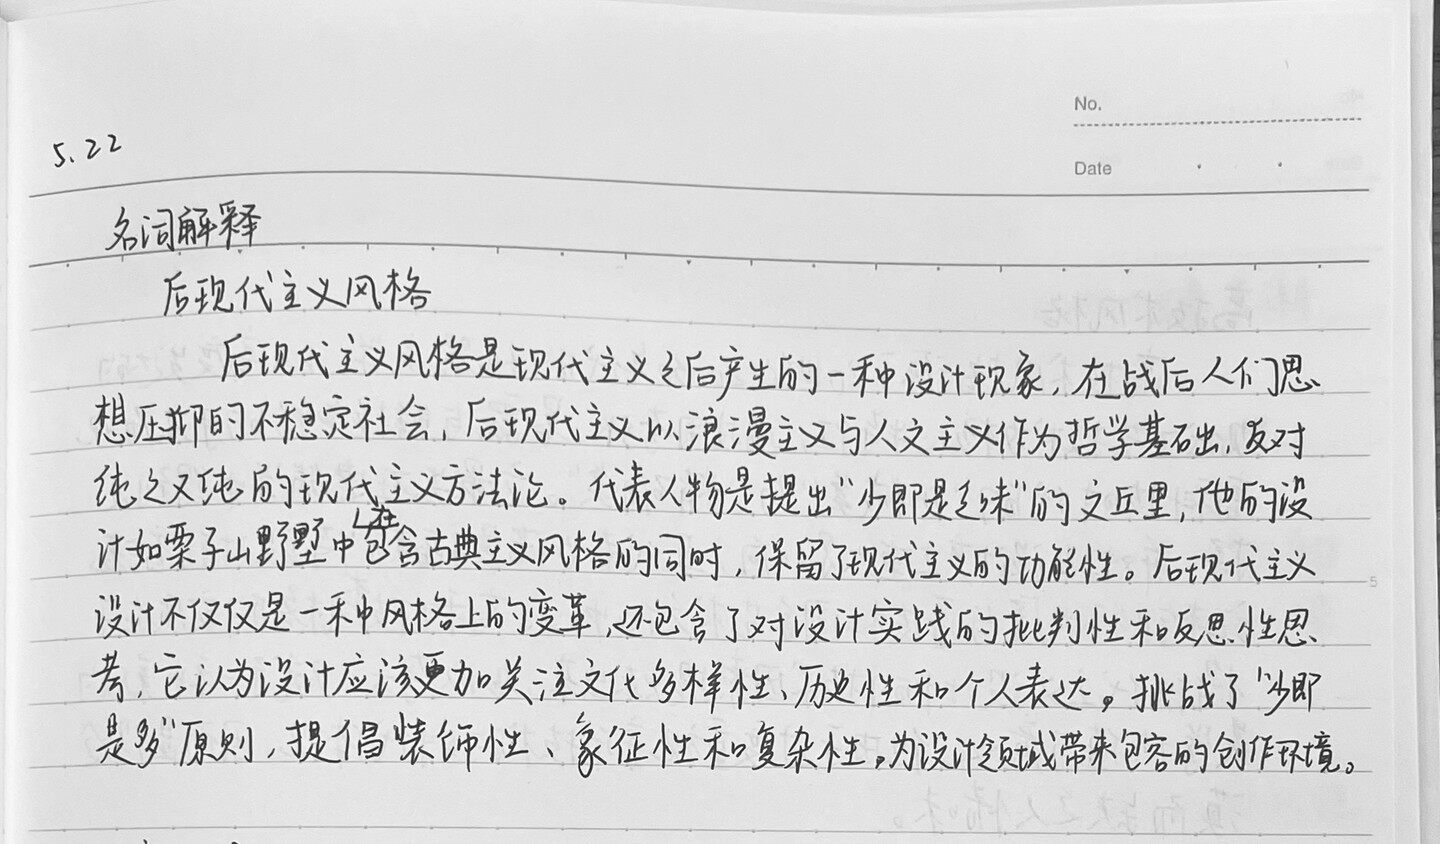 No.
5.22
Date
名词解释
后现代主义风格
后现代主义风格是现代主义之后产生的一种设计现象，在战后人们思
想压抑的不稳定社会，后现代主义以浪漫主义与人文主义作为哲学基础，反对
纯之又纯的现代主义方法论。代表人物是提出“少即是乏味”的文丘里，他的设
计如栗子山野墅中在包含古典主义风格的同时，保留了现代主义的功能性。后现代主义
设计不仅仅是一种风格上的变革，还包含了对设计实践的批判性和反思性思
考，它认为设计应该更加关注文化多样性、历史性和个人表达。挑战了“少即
是多”原则，提倡装饰性、象征性和复杂性。为设计领域带来包容的创作环境。
5